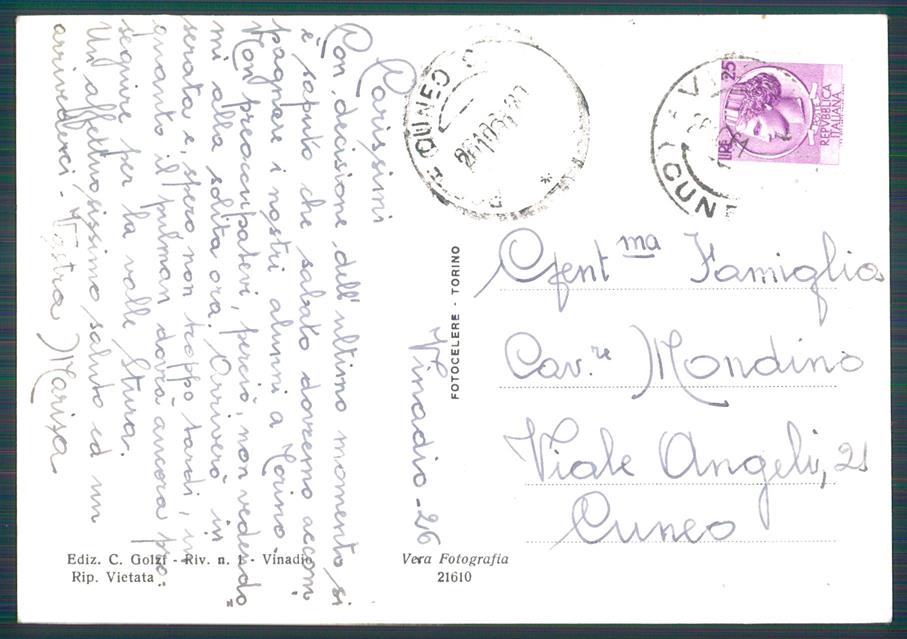 Vinadio - 26
Carissimi
Con decisione dell'ultimo momento si
è saputo che sabato dovremo accom
pagnare i nostri alunni a Torino.
Non preoccupatevi, perciò, non vedendo"
mi alla solita ora. Arriverò in
serata e, spero non troppo tardi, in
quanto il pulman dovrà ancora pro"
seguire per la valle Stura.
Un affettuosissimo saluto ed un
arrivederci - Vostra Marisa
CUNEO
LIRE 25
POSTE
REPVBBLICA
ITALIANA
(CUN
FOTOCELERE - TORINO
Gent.ma Famiglia
Cav.re Mondino
Viale Angeli, 21
Cuneo
Ediz. C. Golzi - Riv. n. 1 - Vinadio
Rip. Vietata
Vera Fotografia
21610